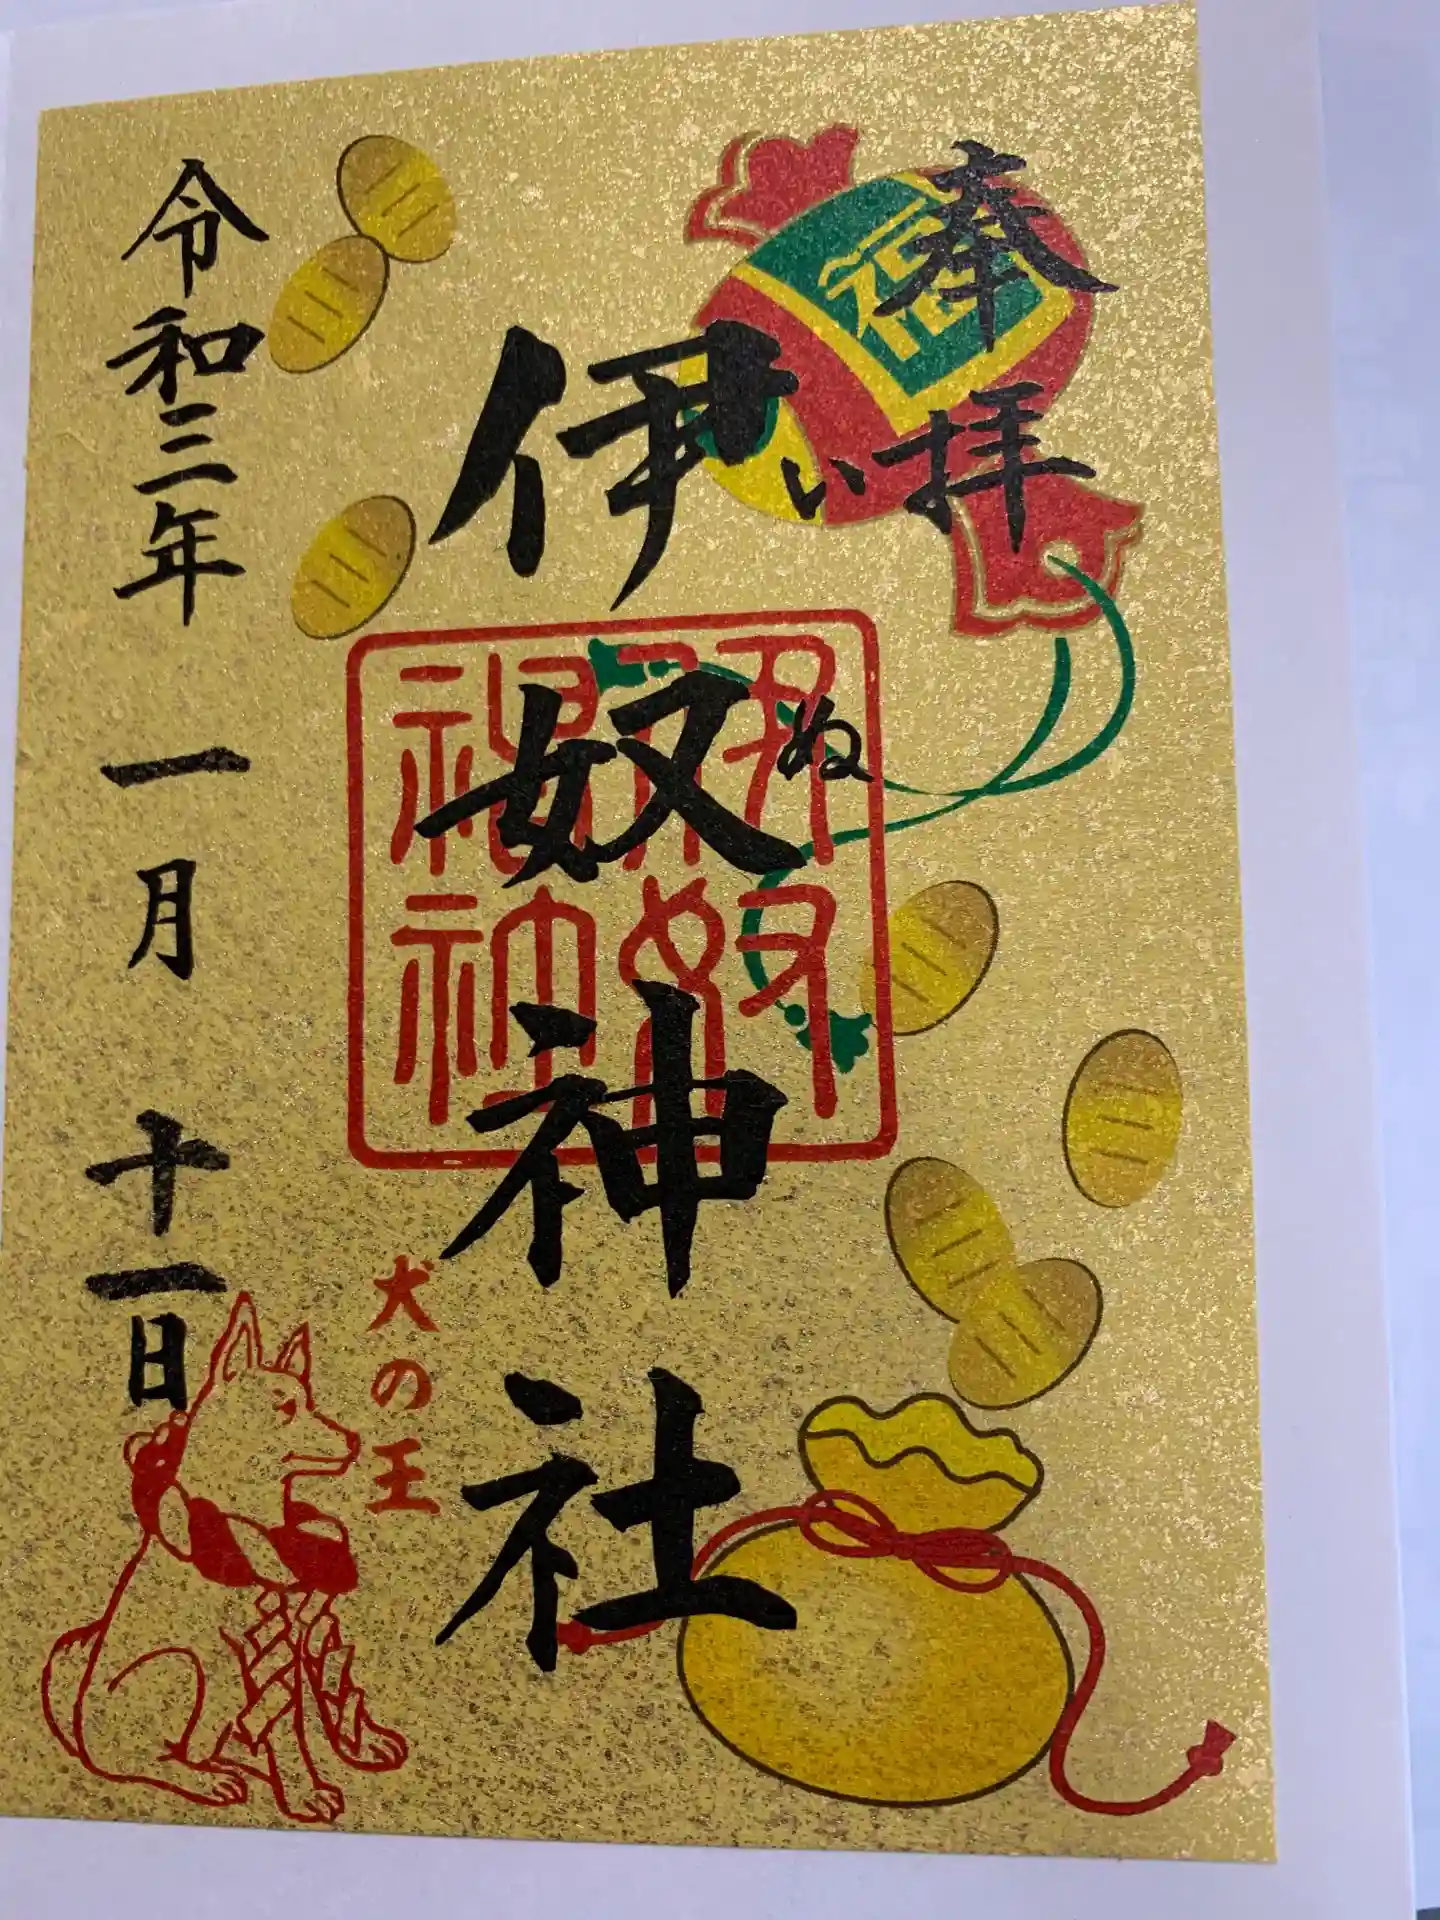 奉拝
福
伊奴神社
いぬ
犬の王
令和三年一月十一日